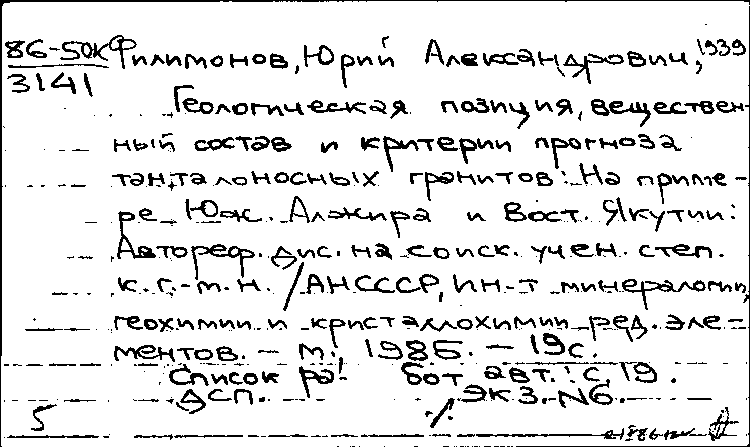 86-50К Филимонов, Юрий Александрович, 1939
3141
Геологическая позиция, веществен-
ный состав и критерии прогноза
танталоносных гранитов: На приме-
ре Юж. Алжира и Вост. Якутии:
Автореф. дис. на соиск. учен. степ.
к.г.-м.н. / АН СССР, Ин-т минералогии,
геохимии и кристаллохимии ред. эле-
ментов. - М. 1985. - 19 с.
Список работ авт.: с. 19.
ДСП. Экз. N6.
5